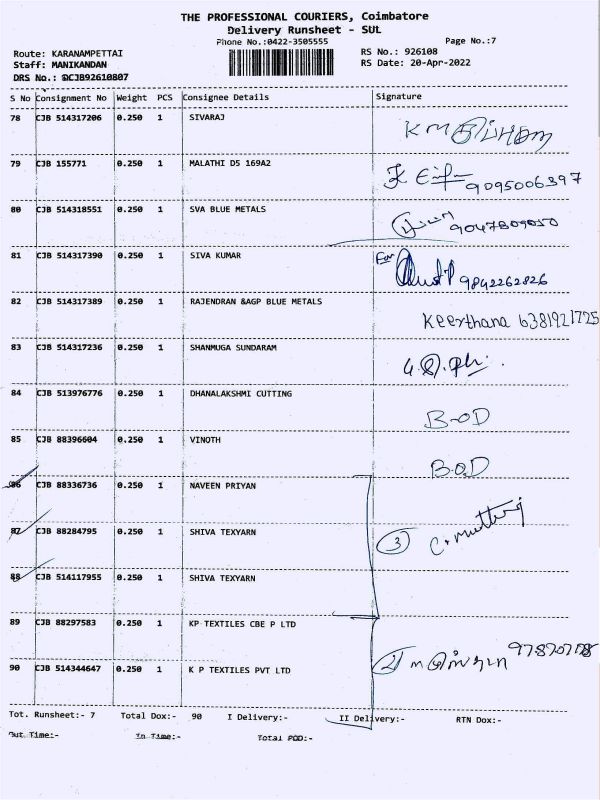 THE PROFESSIONAL COURIERS, Coimbatore
Delivery Runsheet - SUL
Phone No.:0422-3505555 Page No.:7
Route: KARANAMPETTAI RS No.: 926108
Staff: MANIKANDAN RS Date: 20-Apr-2022
DRS No.: DCJB92610807
S No Consignment No Weight PCS Consignee Details Signature
78 CJB 514317206 0.250 1 SIVARAJ
79 CJB 155771 0.250 1 MALATHI D5 169A2 9095006397
80 CJB 514318551 0.250 1 SVA BLUE METALS 9047809050
81 CJB 514317390 0.250 1 SIVA KUMAR For 9842262826
82 CJB 514317389 0.250 1 RAJENDRAN &AGP BLUE METALS Keerthana 6381921725
83 CJB 514317236 0.250 1 SHANMUGA SUNDARAM
84 CJB 513976776 0.250 1 DHANALAKSHMI CUTTING B-OD
85 CJB 88396604 0.250 1 VINOTH B.O.D
86 CJB 88336736 0.250 1 NAVEEN PRIYAN
87 CJB 88284795 0.250 1 SHIVA TEXYARN 3
88 CJB 514117955 0.250 1 SHIVA TEXYARN
89 CJB 88297583 0.250 1 KP TEXTILES CBE P LTD
90 CJB 514344647 0.250 1 K P TEXTILES PVT LTD
Tot. Runsheet:- 7 Total Dox:- 90 I Delivery:- II Delivery:- RTN Dox:-
Out Time:- In Time:- Total POD:-